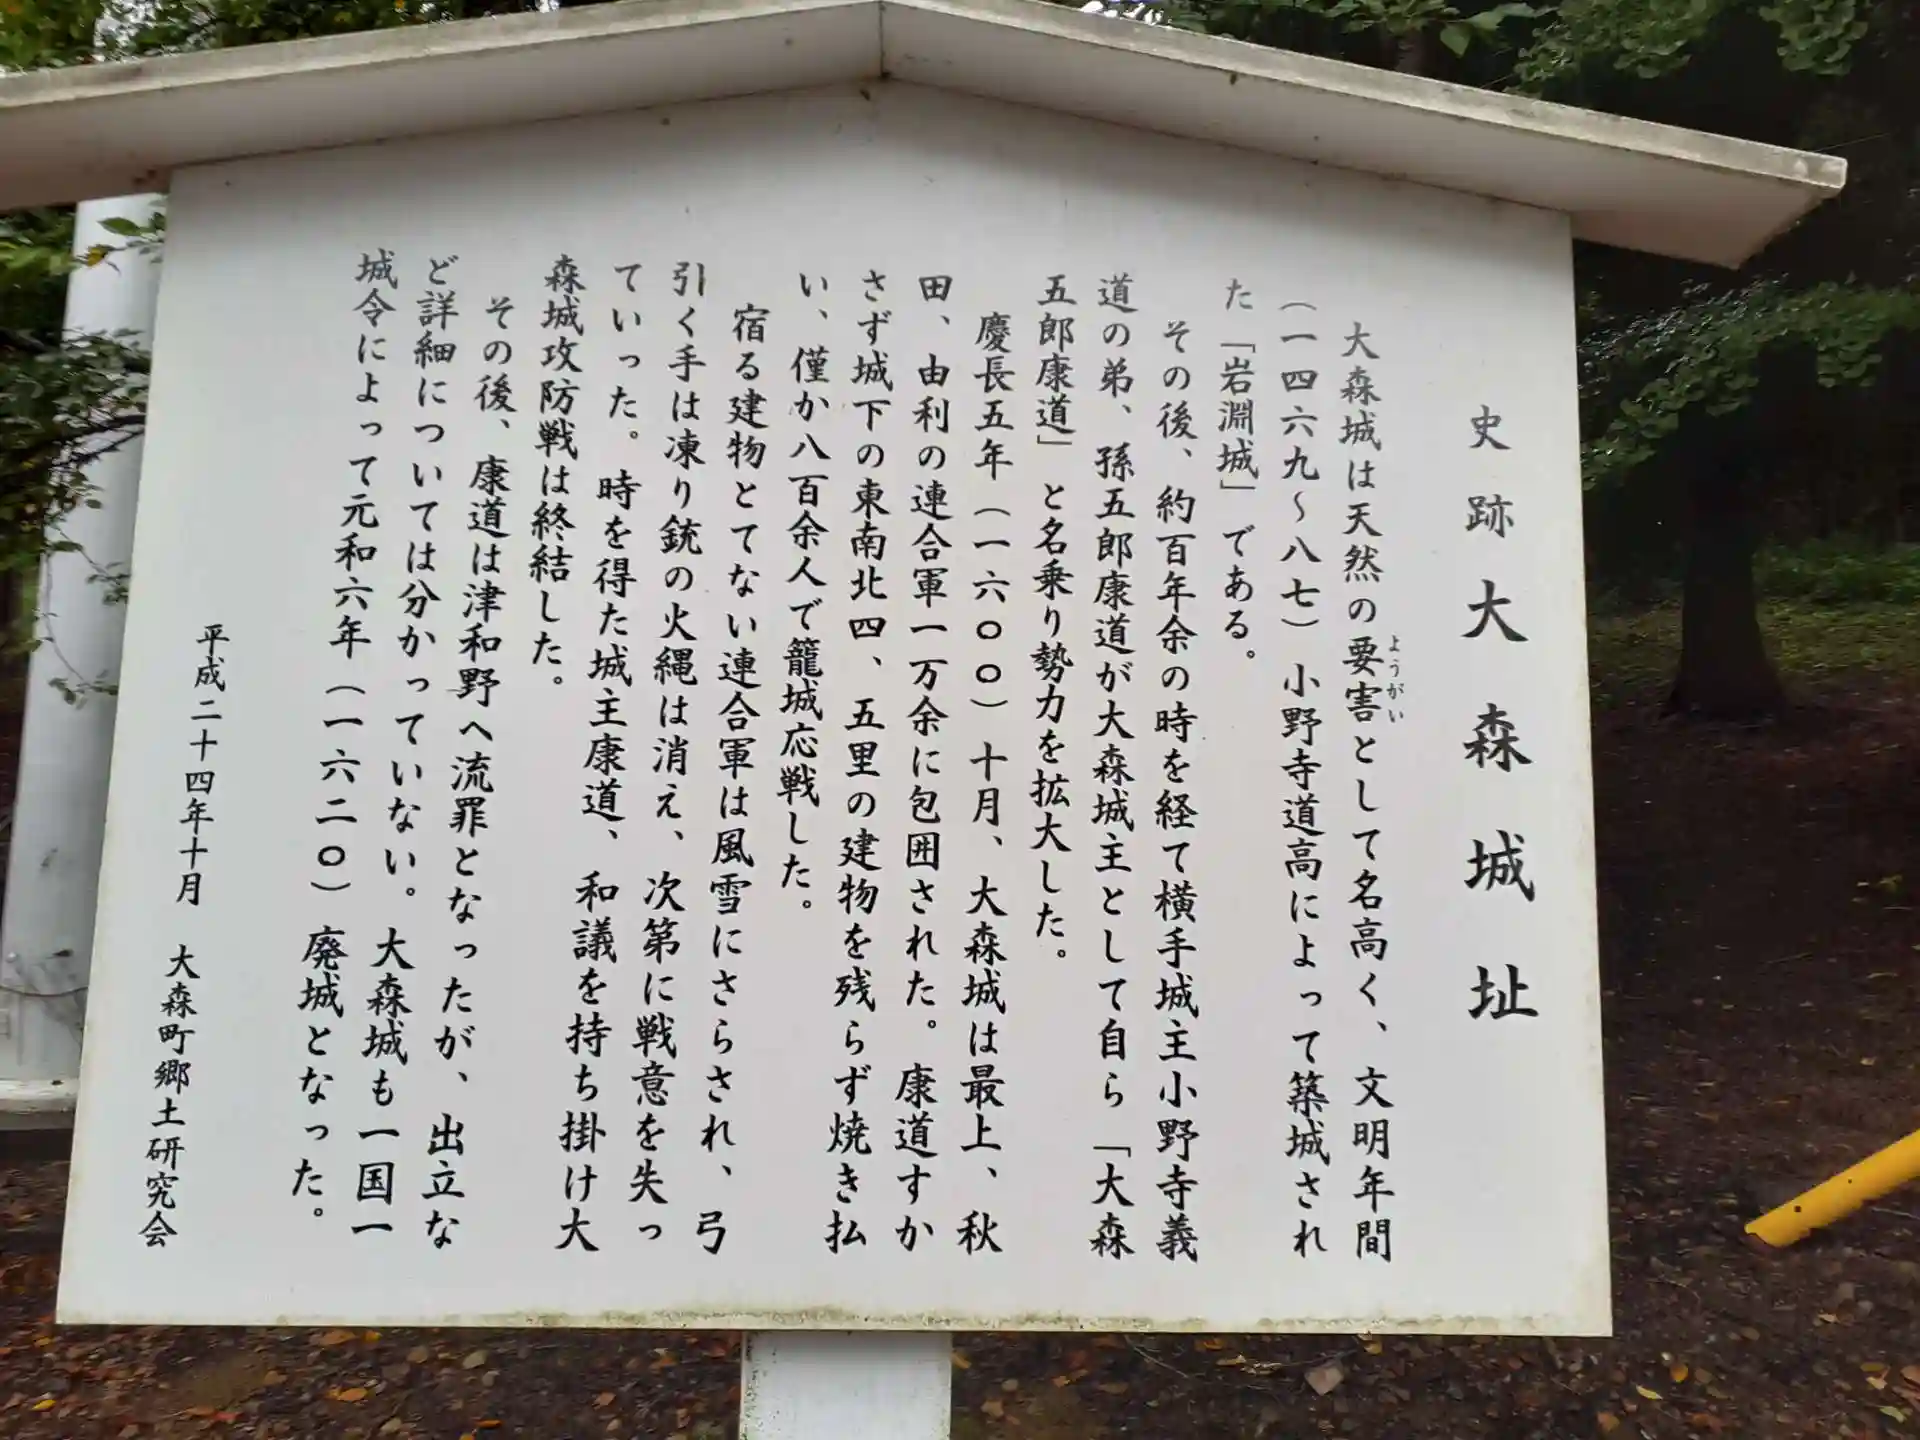 史跡大森城址
大森城は天然の要害として名高く、文明年間
ようがい
（一四六九～八七）小野寺道高によって築城され
た「岩淵城」である。
その後、約百年余の時を経て横手城主小野寺義
道の弟、孫五郎康道が大森城主として自ら「大森
五郎康道」と名乗り勢力を拡大した。
慶長五年（一六〇〇）十月、大森城は最上、秋
田、由利の連合軍一万余に包囲された。康道すか
さず城下の東南北四、五里の建物を残らず焼き払
い、僅か八百余人で籠城応戦した。
宿る建物とてない連合軍は風雪にさらされ、弓
引く手は凍り銃の火縄は消え、次第に戦意を失っ
ていった。時を得た城主康道、和議を持ち掛け大
森城攻防戦は終結した。
その後、康道は津和野へ流罪となったが、出立な
ど詳細については分かっていない。大森城も一国一
城令によって元和六年（一六二〇）廃城となった。
平成二十四年十月　大森町郷土研究会